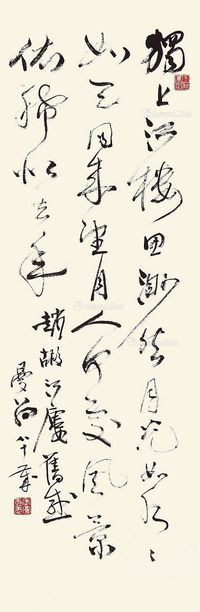 獨上江樓思渺然月光如水〻
如天同來望月人何處風景
依稀似去年
趙嘏江樓舊感
曼翁八十歲